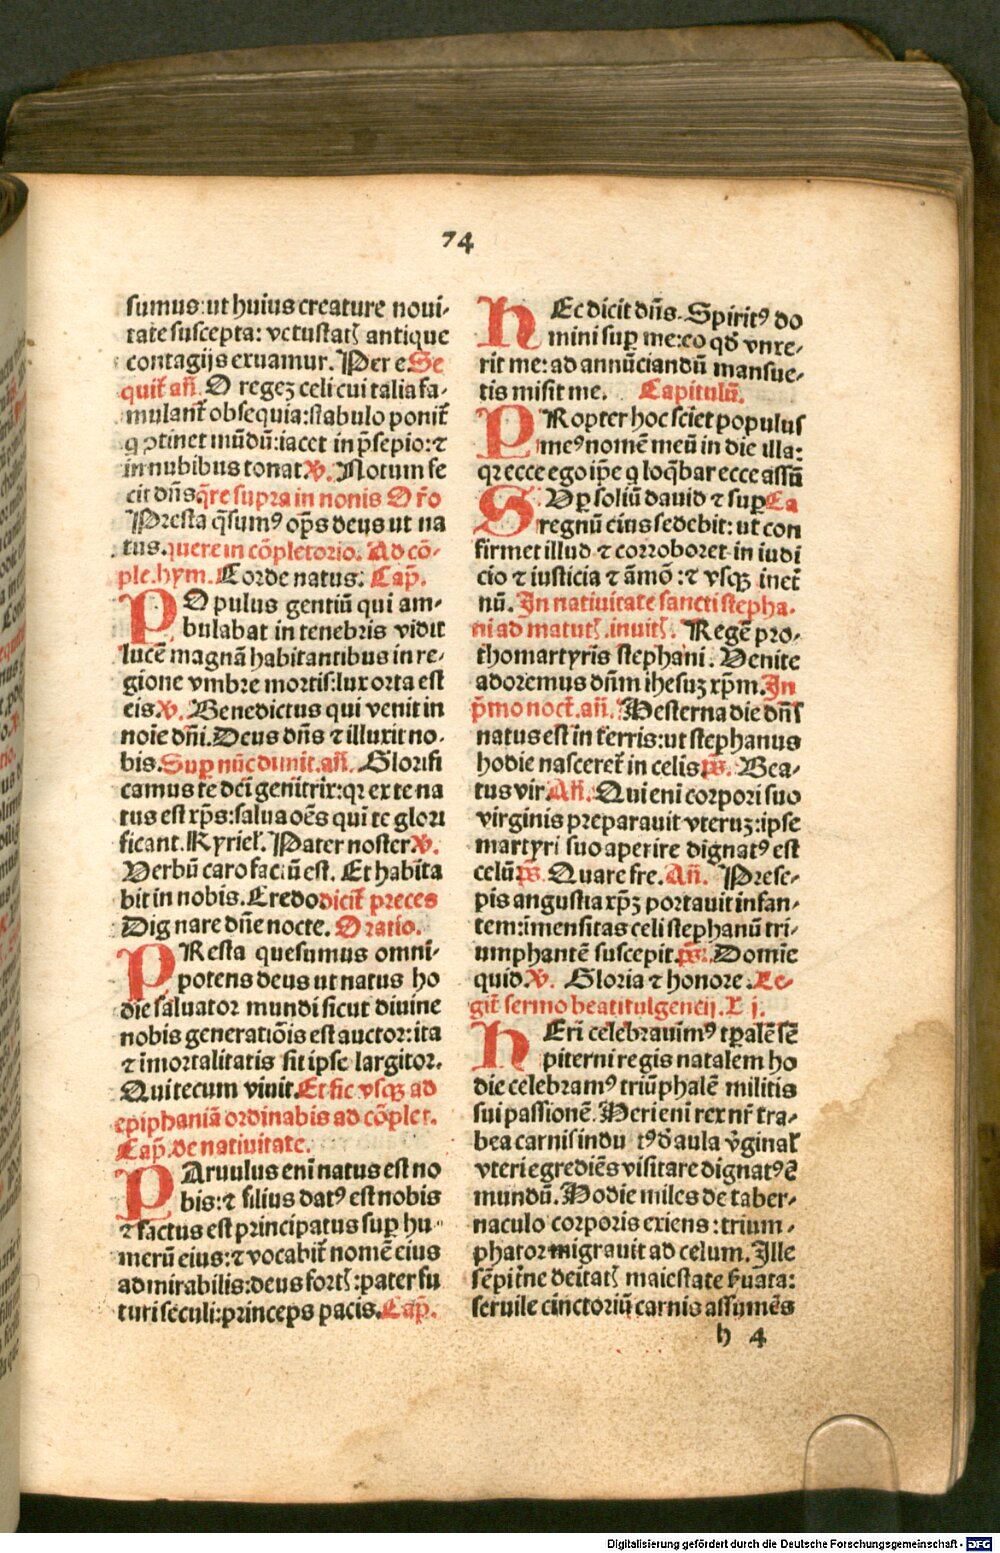 74
sumus:ut huius creature noui-
tate suscepta: vetustatꝭ antique
contagijs exuamur. Per e. Se
quit̃ añ. O regeȝ celi cui talia fa-
mulant̃ obsequia:stabulo ponit̃
q ↄtinet mũdũ:iacet in p̃sepio:⁊
in nubibus tonat ℣. Notum fe
cit dñs. q̃re supra in nonis Or̃o
Presta q̃sumꝰ op̃s deus ut na
tus. quere in cõpletorio. Ad cõ-
ple. hym. Corde natus. Cap̃.
POpulus gentiũ qui am-
bulabat in tenebris vidit
lucẽ magnã habitantibus in re-
gione vmbre mortis:lux orta est
eis. ℣. Benedictus qui venit in
noĩe dñi. Deus dñs ⁊ illuxit no-
bis. Suꝑ nũc dimit. añ. Glorifi
camus te dei genitrix:qꝛ ex te na
tus est xp̃s:salua oẽs qui te glori
ficant. Kyriel̃. Pater noster ℣.
Verbũ caro factũ est. Et habita
bit in nobis. Credo dicit̃ preces
Dignare dñe nocte. Oratio.
PResta quesumus omni-
potens deus ut natus ho
die saluator mundi sicut diuine
nobis generatiõis est auctor:ita
⁊ imortalitatis sit ipse largitor.
Qui tecum viuit. Et sic vsqꝫ ad
epiphaniã ordinabis ad cõplet.
Cap̃. de natiuitate.
PAruulus eni natus est no
bis:⁊ filius datꝰ est nobis
⁊ factus est principatus suꝑ hu-
merũ eius:⁊ vocabit̃ nomẽ eius
admirabilis:deus fortꝭ:pater fu
turi seculi:princeps pacis. Cap̃.
HEc dicit dñs. Spiritꝰ do
mini suꝑ me:eo qđ vnxe-
rit me: ad annũciandũ mansue-
tis misit me. Capitulũ.
PRopter hoc sciet populus
meꝰ nomẽ meũ in die illa:
qꝛ ecce ego ip̃e q loq̃bar ecce assũ
SVꝑ soliũ dauid ⁊ suꝑ Ca
regnũ eius sedebit: ut con
firmet illud ⁊ corroboret in iudi
cio ⁊ iusticia ⁊ ãmõ:⁊ vsqꝫ inet̃
nũ. In natiuitate sancti stepha-
ni ad matutꝭ. inuitꝭ. Regẽ pro-
thomartyris stephani. Venite
adoremus dñm ihesuȝ xp̃m. In
p̃mo noct̃. añ. Hesterna die dñs
natus est in terris:ut stephanus
hodie nasceret̃ in celis. ps̃. Bea-
tus vir. Añ. Qui eni corpori suo
virginis preparauit vteruȝ:ipse
martyri suo aperire dignatꝰ est
celũ. ps̃. Quare fre. Añ. Prese-
pis angustia xp̃ȝ portauit infan-
tem:imensitas celi stephanũ tri-
umphantẽ suscepit. ps̃. Domie
quid. ℣. Gloria ⁊ honore. Le-
git̃ sermo beati fulgencij. L i.
HEri celebrauimꝰ tꝑalẽ sẽ
piterni regis natalem ho
die celebramꝰ triũphalẽ militis
sui passionẽ. Heri eni rex nr̃ tra-
bea carnis indutꝰ đ aula v̾ginal̃
vteri egrediẽs visitare dignatꝰ ẽ
mundũ. Hodie miles de taber-
naculo corporis exiens: trium-
phator migrauit ad celum. Ille
sẽpit̾ne deitatꝭ maiestate ẜuata:
seruile cinctoriũ carnis assumẽs
h 4
Digitalisierung gefördert durch die Deutsche Forschungsgemeinschaft - DFG